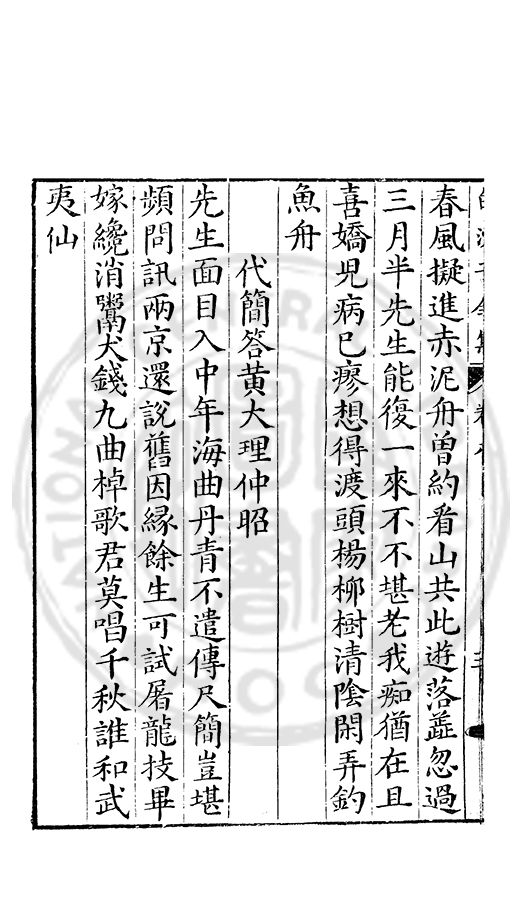 春風擬進赤泥舟曾約看山共此遊落蕋忽過
三月半先生能復一來不不堪老我痴猶在且
喜嬌兒病已瘳想得渡頭楊柳樹清陰閑弄釣
魚舟
代簡答黄大理仲昭
先生面目入中年海曲丹青不遣傳尺簡豈堪
頻問訊兩京還說舊因縁餘生可試屠龍技畢
嫁纔消鬻犬錢九曲棹歌君莫唱千秋誰和武
夷仙